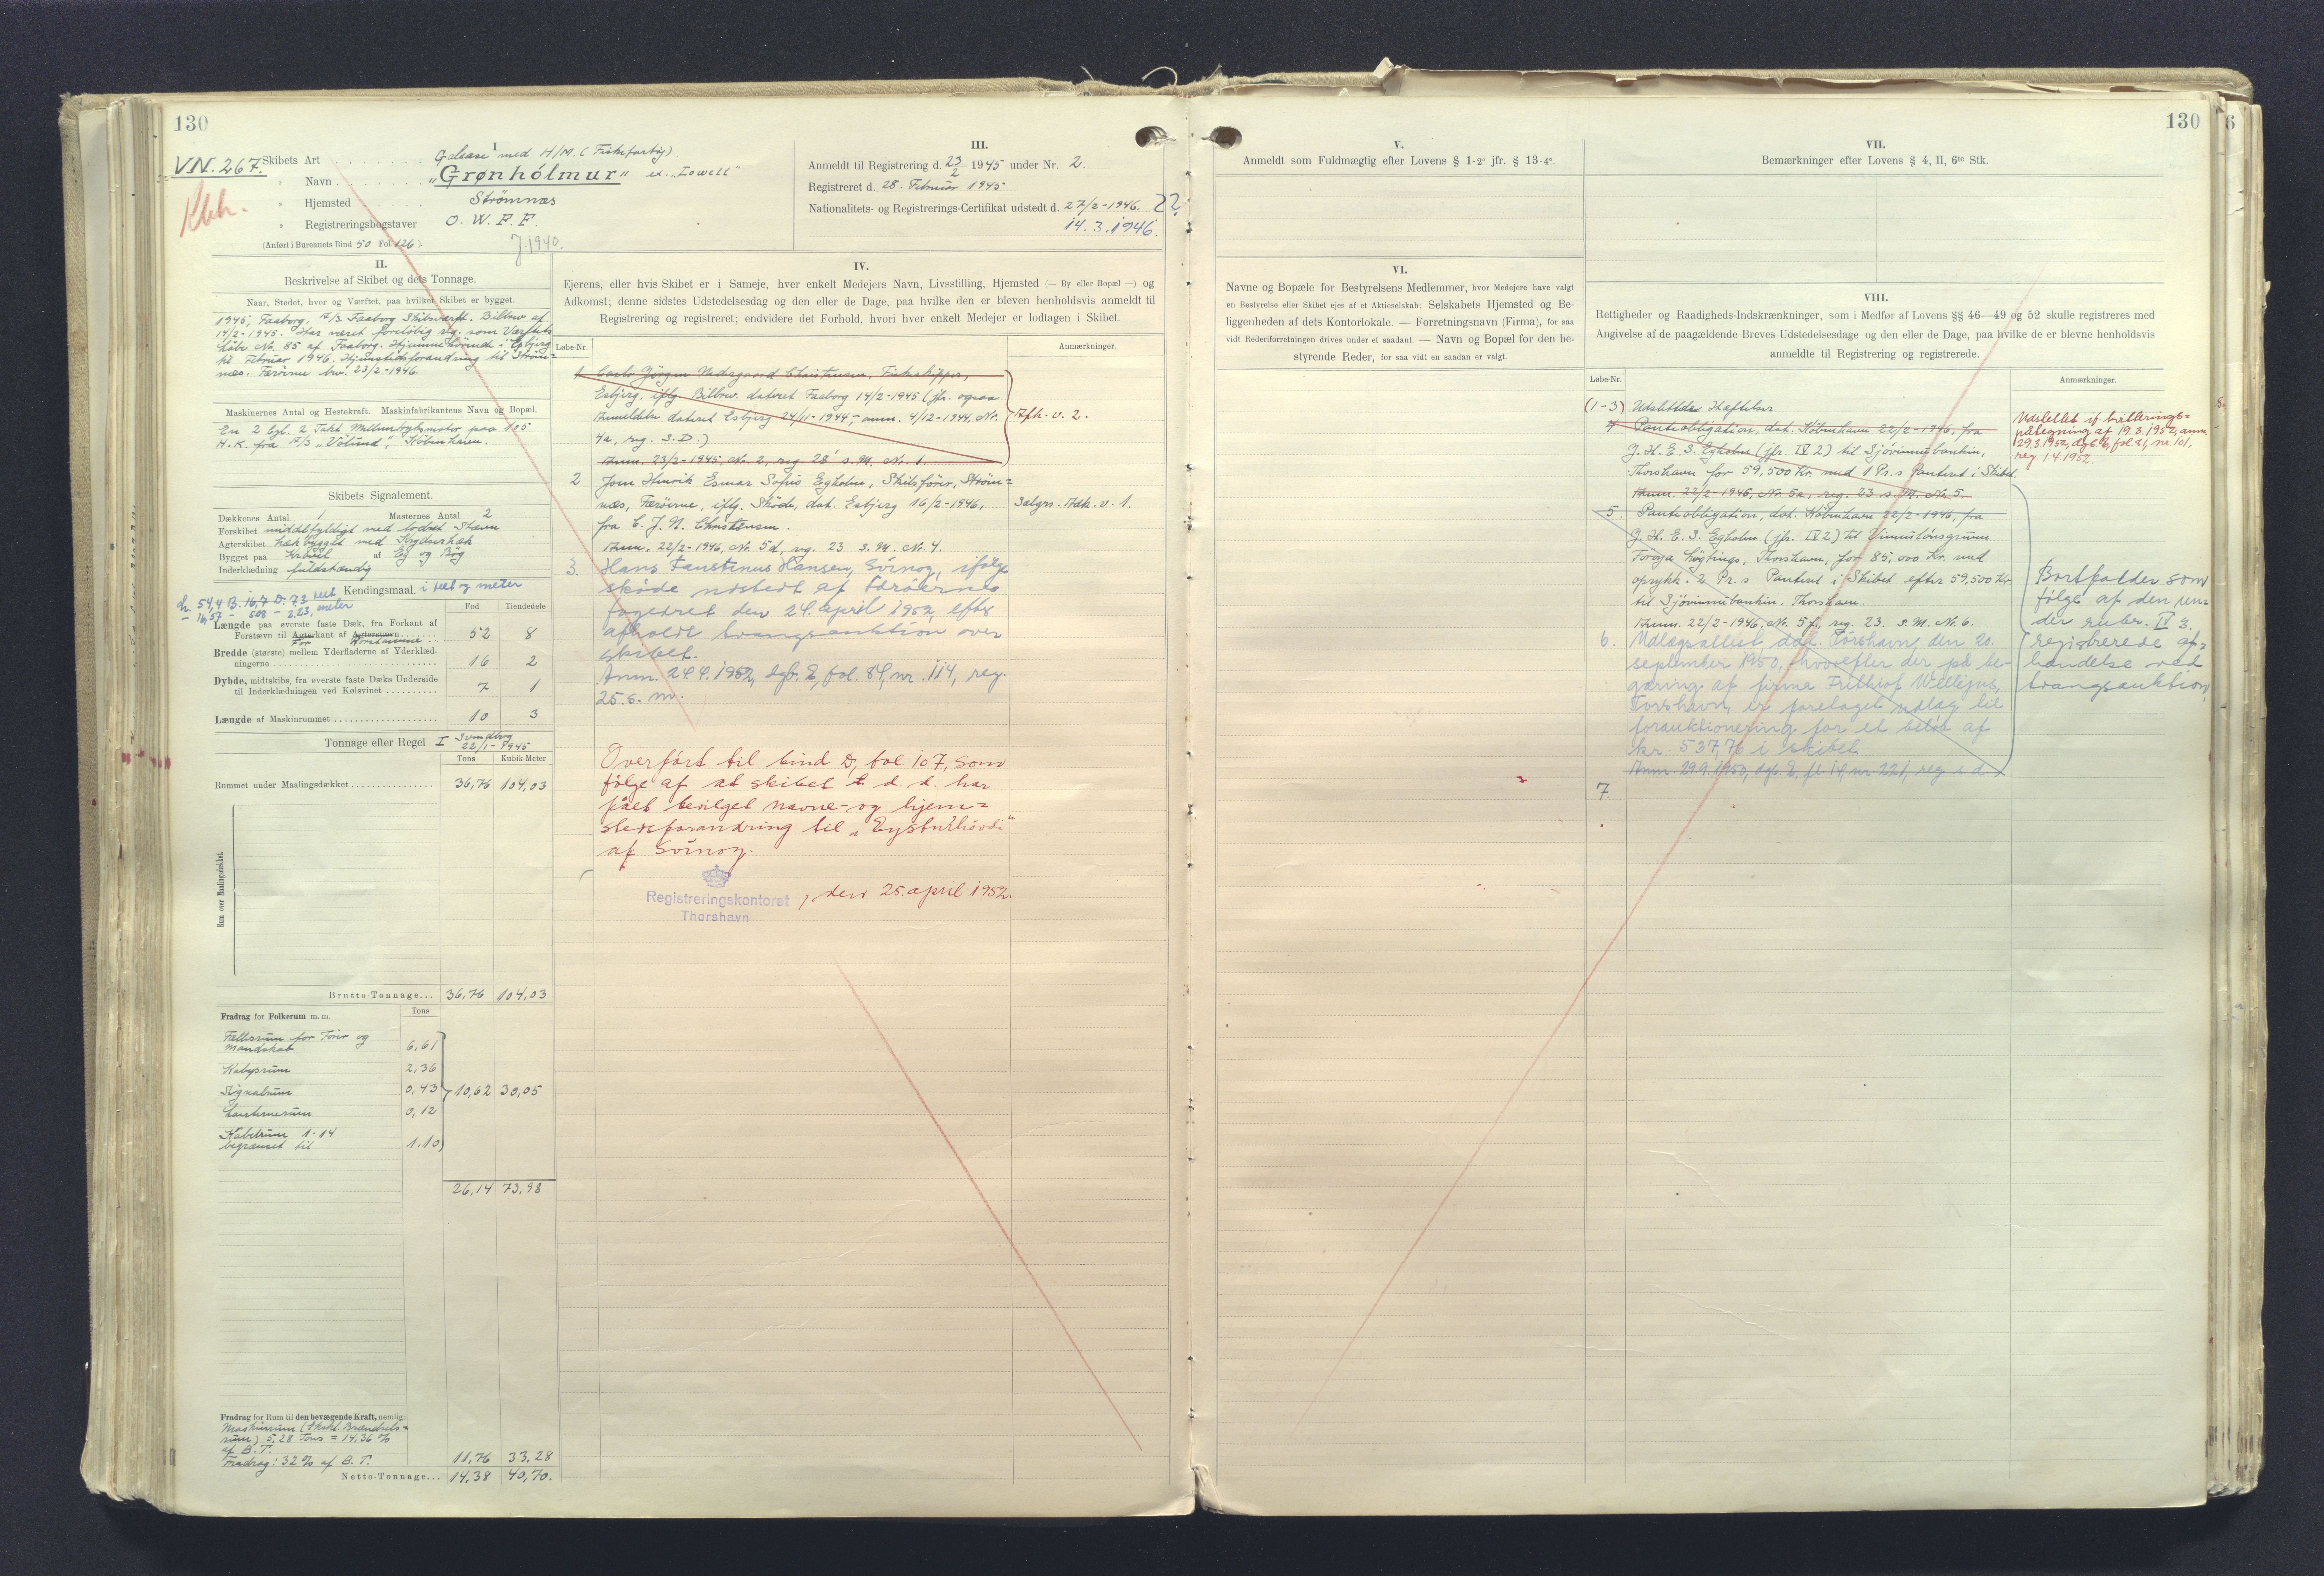 130
VN. 267.
I
Skibets Art Galease med H/M. (Fiskefartøj)
" Navn "Grønhólmur" ex. "Lowell"
" Hjemsted Strømnæs
" Registreringsbogstaver O. W. F. F.
(Anført i Bureauets Bind 50 Fol. 126).
1940.
III.
Anmeldt til Registrering d. 23/2 1945 under Nr. 2.
Registreret d. 28. Februar 1945
Nationalitets- og Registrerings-Certifikat udstedt d. 27/2-1946. 22
14.3.1946.
II.
Beskrivelse af Skibet og dets Tonnage.
Naar, Stedet, hvor og Værftet, paa hvilket Skibet er bygget.
1945, Faaborg. A/S Faaborg Skibsværft. Bilbrev af
14/2-1945. Har været foreløbig reg. som Værftets
Løbe Nr. 85 af Faaborg. Hjemmehørende i Esbjerg
til Februar 1946. Hjemstedsforandring til Strøm=
næs. Færøerne bev. 23/2-1946.
Maskinernes Antal og Hestekraft. Maskinfabrikantens Navn og Bopæl.
En 2 cyl. 2 Takt Mellemtryksmotor paa 105
H.K. fra A/S "Vølund", København.
Skibets Signalement.
Dækkenes Antal 1 Masternes Antal 2
Forskibet middelfyldigt med lodret Stævn
Agterskibet hækbygget med Krydserhæk
Bygget paa Kravel af Eg og Bøg
Inderklædning fuldstændig
Kendingsmaal, i feet og meter
L. 54,4 B. 16,7 D. 7,3 feet
- 16,57 - 508 - 223, meter
Fod Tiendedele
Længde paa øverste faste Dæk, fra Forkant af
Forstævn til Agterkant af Agterstævn 52 8
For Rorstamme
Bredde (største) mellem Yderfladerne af Yderklæd-
ningerne 16 2
Dybde, midtskibs, fra øverste faste Dæks Underside
til Inderklædningen ved Kølsvinet 7 1
Længde af Maskinrummet 10 3
Tonnage efter Regel I Svendborg
22/1-1945
Tons Kubik-Meter
Rummet under Maalingsdækket 36,76 104,03
Rum over Maalingsdækket.
Brutto-Tonnage... 36,76 104,03
Fradrag for Folkerum m. m. Tons
Fællesrum for Fører og
Mandskab 6,61
Kabysrum 2,36
Signalrum 0,43 10,62 30,05
Lanternerum 0,12
Kabelrum 1.14
begrænset til 1.10
26,14 73,98
Fradrag for Rum til den bevægende Kraft, nemlig:
Maskinrum (Inkl. Brændsels=
rum) 5,28 Tons = 14,36 %
af B.T.
Fradrag: 32% af B.T. 11,76 33,28
Netto-Tonnage... 14,38 40,70.
IV.
Ejerens, eller hvis Skibet er i Sameje, hver enkelt Medejers Navn, Livsstilling, Hjemsted (— By eller Bopæl —) og
Adkomst; denne sidstes Udstedelsesdag og den eller de Dage, paa hvilke den er bleven henholdsvis anmeldt til
Registrering og registreret; endvidere det Forhold, hvori hver enkelt Medejer er lodtagen i Skibet.
Løbe-Nr. Anmærkninger.
1 Carlo Jörgen Nedergaard Christensen, Fiskeskipper,
Esbjerg, iflg Bilbrev. dateret Faaborg 14/2-1945 (jfr. ogsaa
Anmeldelse dateret Esbjerg 24/11-1944, anm. 4/12-1944, Nr. Afh. v. 2.
4a, reg. s.D.)
Anm. 23/2-1945, Nr. 2, reg. 28' s.M. Nr. 1.
2 Jom Henrik Esmar Sofus Egholm, Skibsfører, Strøm=
næs, Færøerne, iflg. Skøde, dat. Esbjerg 16/2-1946, Sælgrs. Adk. v. 1.
fra C. J. N. Christensen.
Anm. 22/2-1946, Nr. 5d, reg. 23 s.M. Nr. 4.
3. Hans Faustinus Hansen, Svinoy, ifølge
skøde udstedt af Færøernes
fogedret den 24. april 1952 efter
afholdt tvangsauktion over
skibet.
Anm. 24.4.1952, dgb. E, fol. 84, nr. 114, reg.
25. s. m.
Overført til bind D, fol 107, som
følge af at skibet d. d. har
fået bevilget navne- og hjem=
stedsforandring til "Eysturhövdi"
af Svinoy.
Registreringskontoret
Thorshavn
, den 25. april 1952
130
V.
Anmeldt som Fuldmægtig efter Lovens § 1-2° jfr. § 13-4°.
VI.
Navne og Bopæle for Bestyrelsens Medlemmer, hvor Medejere have valgt
en Bestyrelse eller Skibet ejes af et Aktieselskab; Selskabets Hjemsted og Be-
liggenheden af dets Kontorlokale. — Forretningsnavn (Firma), for saa
vidt Rederiforretningen drives under et saadant. — Navn og Bopæl for den be-
styrende Reder, for saa vidt en saadan er valgt.
VII.
Bemærkninger efter Lovens § 4, II, 6te Stk.
VIII.
Rettigheder og Raadigheds-Indskrænkninger, som i Medfør af Lovens §§ 46—49 og 52 skulle registreres med
Angivelse af de paagældende Breves Udstedelsesdage og den eller de Dage, paa hvilke de er blevne henholdsvis
anmeldte til Registrering og registrerede.
Løbe-Nr. Anmærkninger.
(1-3) Udslettede Hæftelser
4 Panteobligation, dat. København 22/2-1946, fra
J. H. E. S. Egholm (jfr. IV 2) til Sjóvinnubankin,
Thorshavn for 59,500 Kr. med 1 Pr.s Panteret i Skibet.
Anm. 22/2-1946, Nr. 5e, reg. 23 s.M. Nr. 5.
Udslettet if. kvitterings=
påtegning af 19.3.1952, anm.
29.3.1952, dgb. E, fol. 81, nr. 101,
reg. 1.4.1952.
5. Panteobligation, dat. København 22/2-1946, fra
J. H. E. S. Egholm (jfr. IV 2) til Vinnulónsgrunn
Føroya Løgtings, Thorshavn, for 85,000 Kr. med
oprykk. 2 Pr.s Panteret i Skibet efter 59,500 Kr.
til Sjóvinnubankin, Thorshavn.
Anm. 22/2-1946, Nr. 5f, reg. 23. s.M. Nr. 6.
6. Udlægsattest dat. Tórshavn den 20.
september 1950, hvorefter der på be-
gæring af firma Frithiof Wellejus,
Tórshavn, er foretaget udlæg til
forauktionering for et beløb af
kr. 537,76 i skibet
Anm. 29.9.1950, dgb. E, fl. 14, nr. 221, reg s. d.
Bortfalder som
følge af den un=
der rubr. IV 3.
registrerede af=
hændelse ved
tvangsauktion
7.